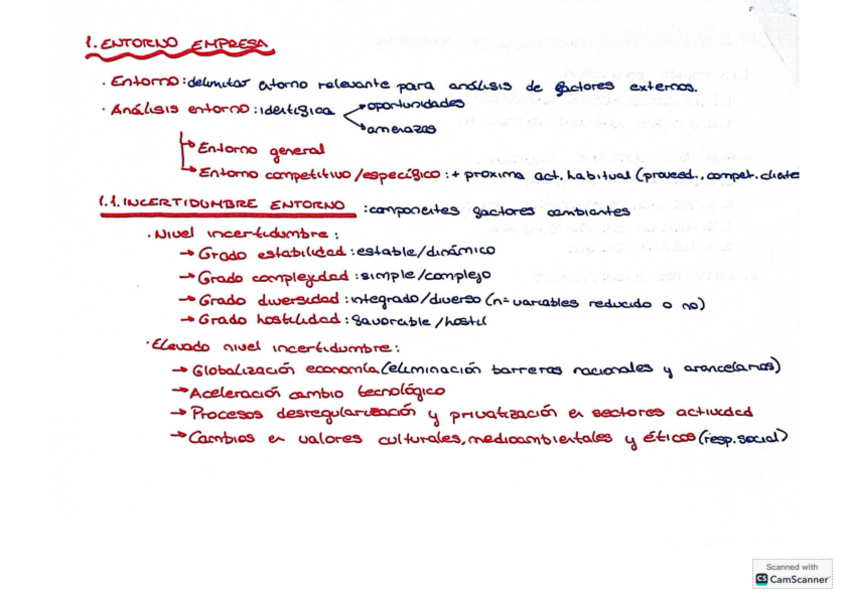 1. ENTORNO EMPRESA
· Entorno: delimitar entorno relevante para análisis de factores externos.
· Análisis entorno: identifica → oportunidades
→ amenazas
→ Entorno general
→ Entorno competitivo/específico: + proxima act. habitual (proveed., compet. cliente
1.1. INCERTIDUMBRE ENTORNO : componentes factores cambiantes
· Nivel incertidumbre:
→ Grado estabilidad: estable/dinámico
→ Grado complejidad: simple/complejo
→ Grado diversidad: integrado/diverso (nº variables reducido o no)
→ Grado hostilidad: favorable/hostil
· Elevado nivel incertidumbre:
→ Globalización economía (eliminación barreras nacionales y arancelarias)
→ Aceleración cambio tecnológico
→ Procesos desregularización y privatización en sectores actividad
→ Cambios en valores culturales, medioambientales y éticos (resp. social)
Scanned with
CS CamScanner